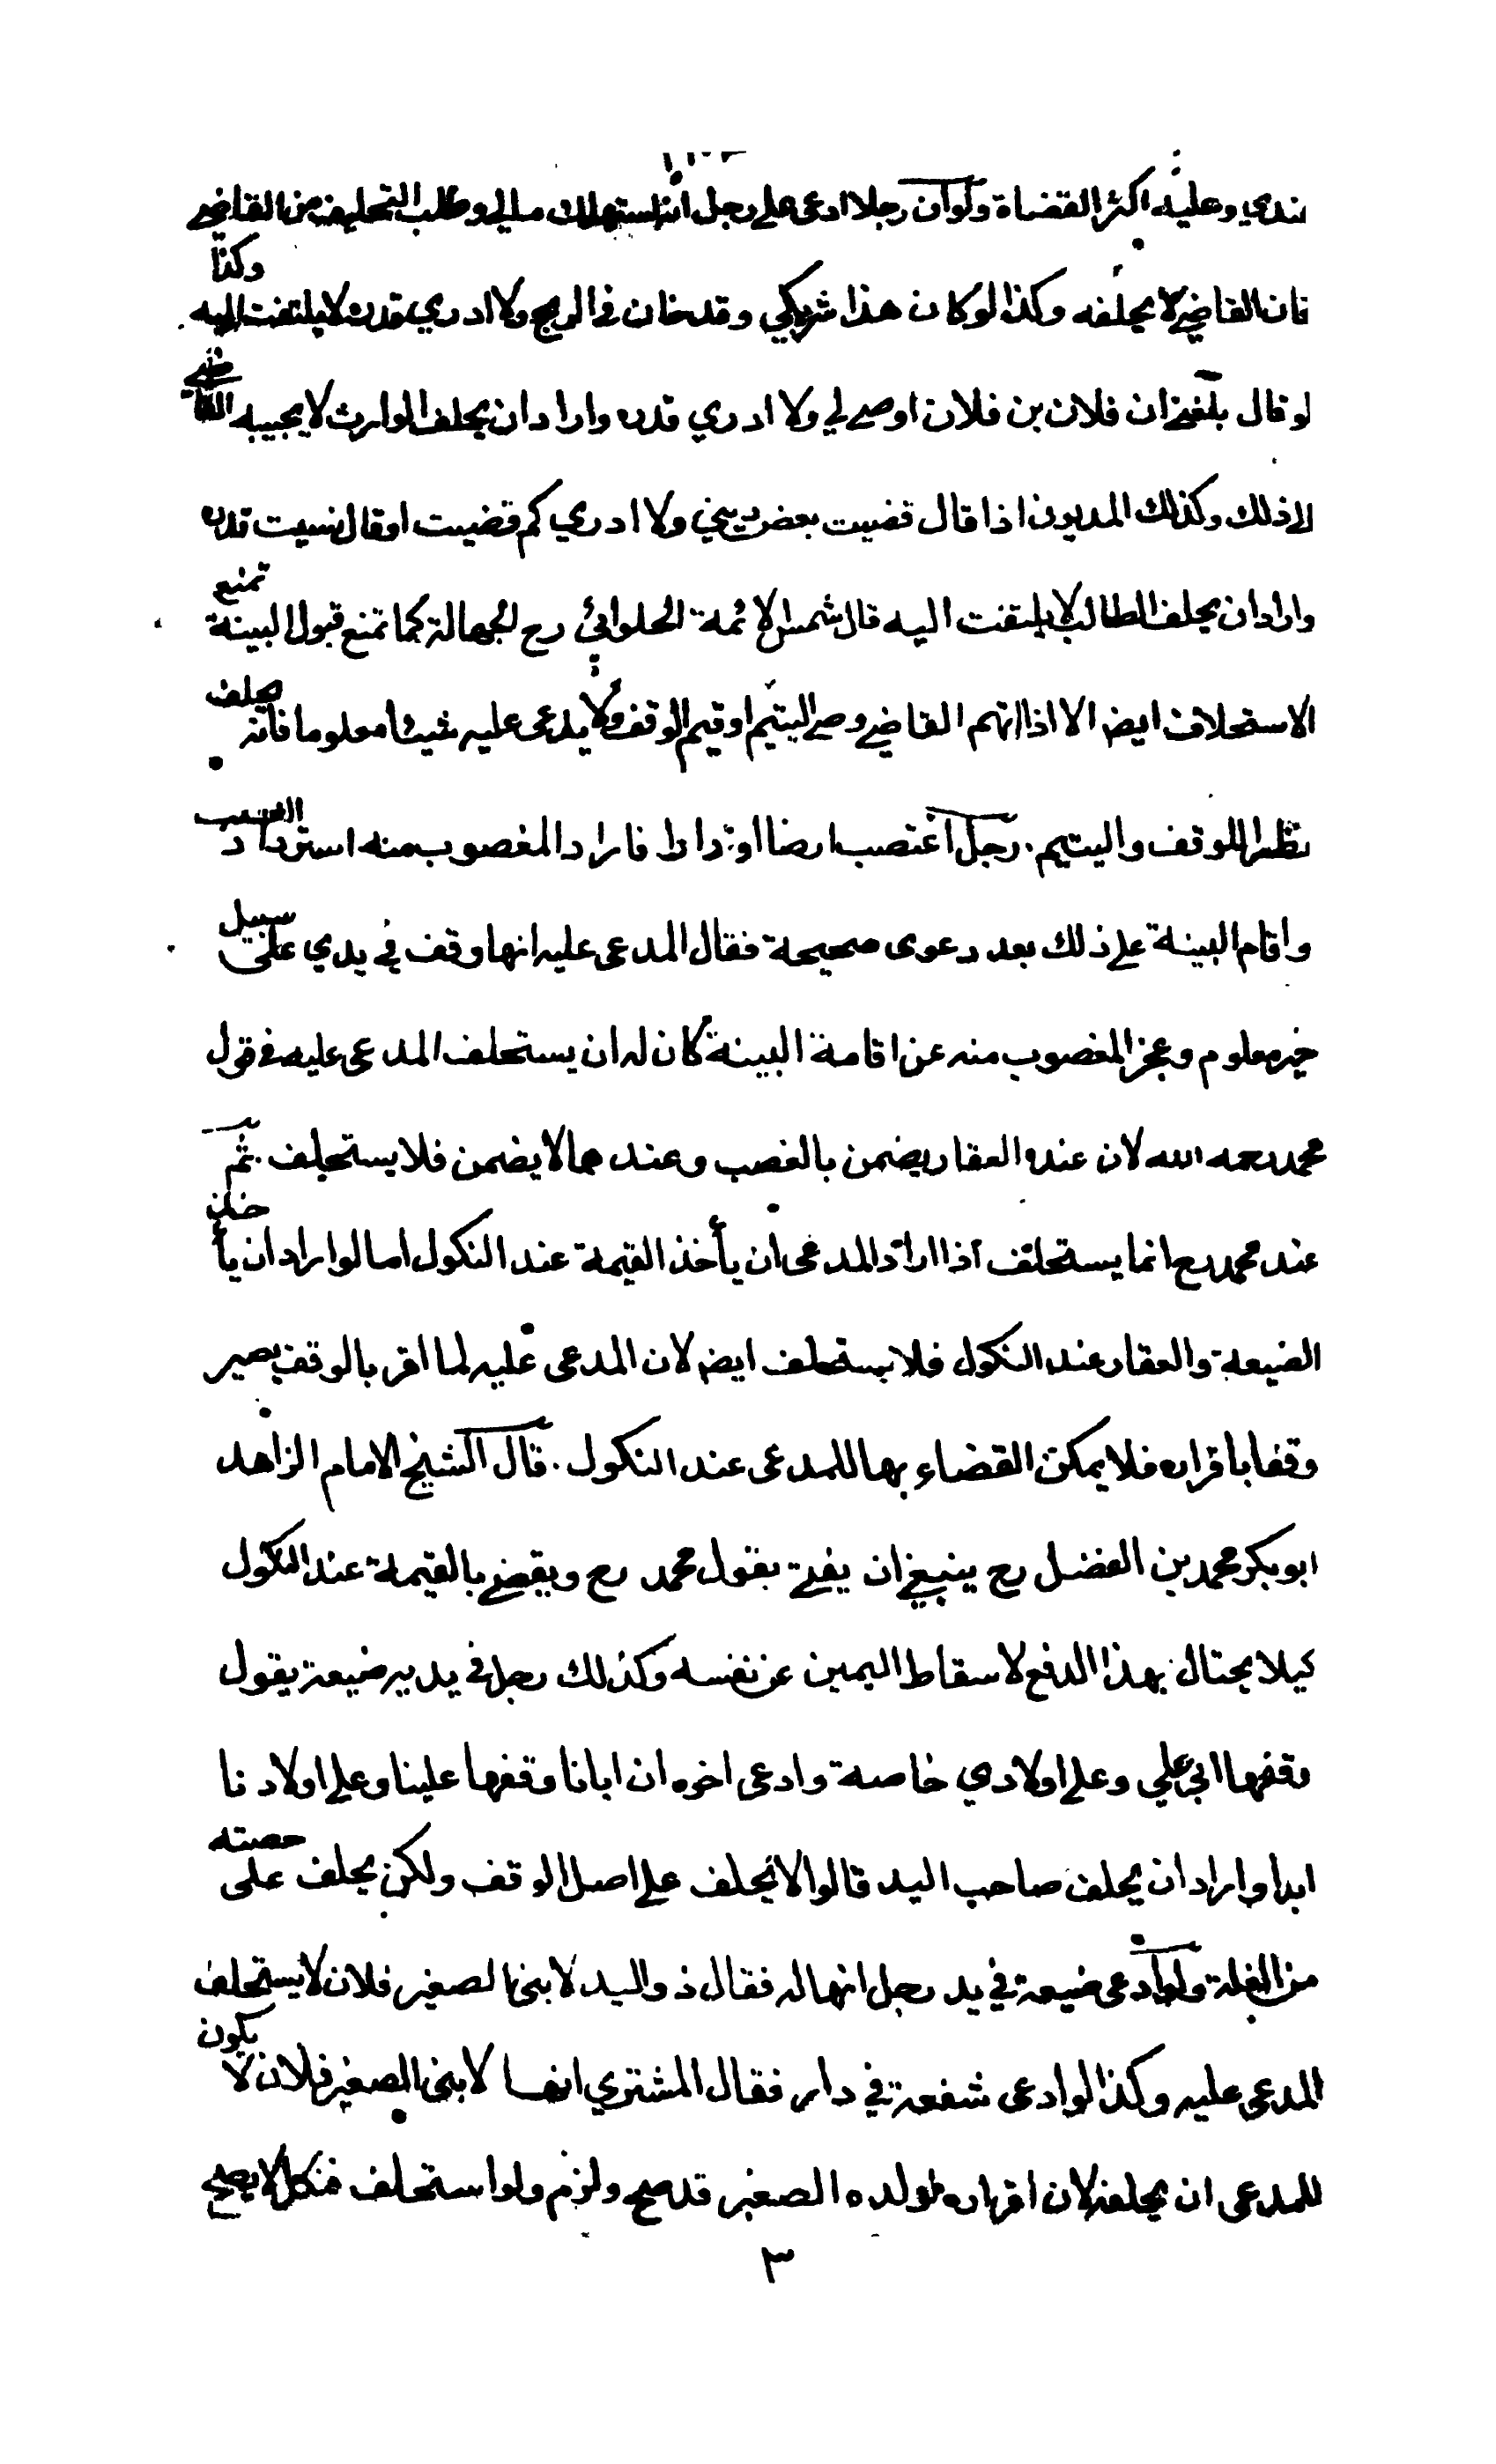 عندي وعليه اكثر القضاة ولوان رجلا ادعى على رجل انه استهلك مالي وطلب التحليف من القاضي
فان القاضي لا يحلفه وكذا لو كان هذا شريكي وقد خان في الربح ولا ادري قدره لا يلتفت اليه وكذا
لو قال بلغني ان فلان بن فلان اوصى لي ولا ادري قدره واراد ان يحلف الوارث لا يجيبه القاضي
الى ذلك وكذلك المديون اذا قال قضيت بعض ديني ولا ادري كم قضيت او قال نسيت قدره
واراد ان يحلف الطالب لا يلتفت اليه قال شمس الائمة الحلوائي رح الجهالة كما تمنع قبول البينة تمنع
الاستحلاف ايض الا اذا اتهم القاضي وصي اليتيم او قيم الوقف ولا يدعى عليه شيئا معلوما فانه يحلف
نظرا للوقف واليتيم . رجل اغتصب ارضا او دارا فاراد المغصوب منه استرداد الغصب
واقام البينة على ذلك بعد دعوى صحيحة فقال المدعى عليه انها وقف في يدي على سبيل
خير معلوم وعجز المغصوب منه عن اقامة البينة كان له ان يستحلف المدعى عليه في قول
محمد رحمه الله لان عنده العقار يضمن بالغصب وعندهما لا يضمن فلا يستحلف . ثم
عند محمد رح انما يستحلف اذا اراد المدعى ان يأخذ القيمة عند النكول اما لو اراد ان يأخذ
الضيعة والعقار عند النكول فلا يستحلف ايض لان المدعى عليه لما اقر بالوقف يصير
وقفا باقراره فلا يمكن القضاء بها للمدعى عند النكول . قال الشيخ الامام الزاهد
ابو بكر محمد بن الفضل رح ينبغي ان يفتى بقول محمد رح ويقضى بالقيمة عند النكول
كيلا يحتال بهذا الدفع لاسقاط اليمين عن نفسه وكذلك رجل في يديه ضيعة يقول
وقفها ابي علي وعلى اولادي خاصة وادعى اخوه ان ابانا وقفها علينا وعلى اولادنا
ابدا واراد ان يحلف صاحب اليد قالوا لا يحلف على اصل الوقف ولكن يحلف على حصته
من الغلة ولو ادعى ضيعة في يد رجل انها له فقال ذو اليد لابني الصغير فلان لا يستحلف
المدعى عليه وكذا لو ادعى شفعة في دار فقال المشتري انها لابني الصغير فلان لا يكون
للمدعى ان يحلفه لان اقراره لولده الصغير قد صح ولزم ولو استحلف فنكل لا يصح
٣